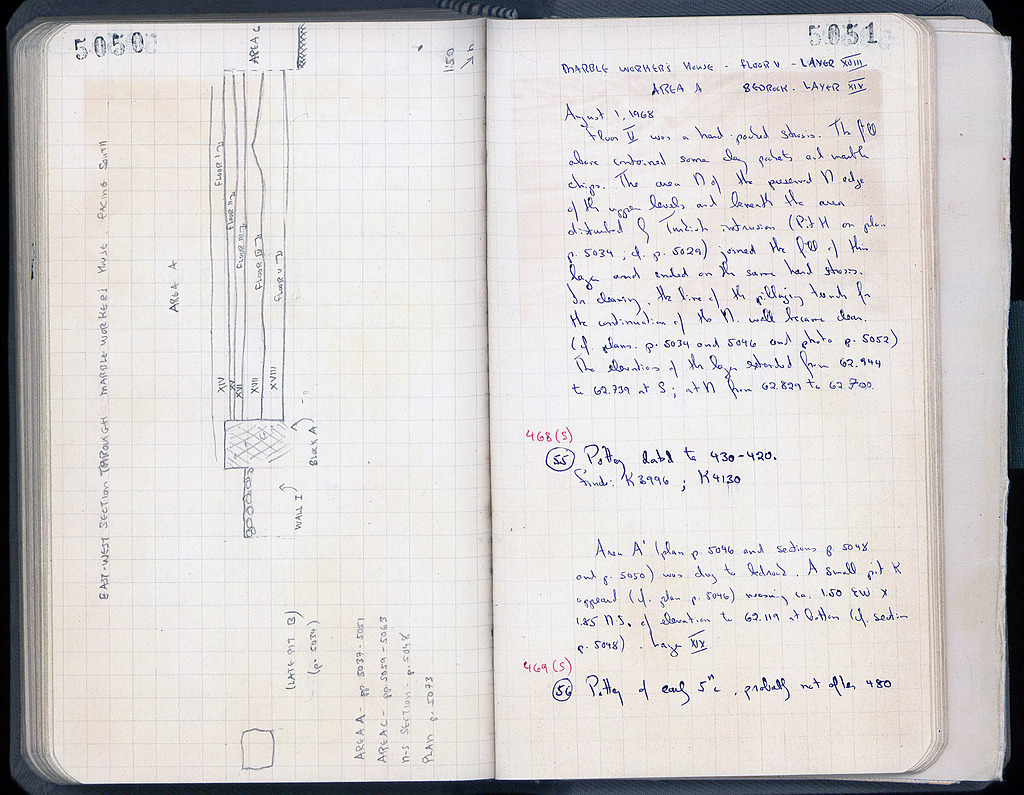 5050
AREA C
1:50
N
EAST-WEST SECTION THROUGH MARBLE WORKER'S HOUSE FACING SOUTH
AREA A
FLOOR I
FLOOR II
FLOOR III
FLOOR IV
FLOOR V
XIV
XV
XVI
XVII
XVIII
Block A
WALL I
(LATE PIT B)
(p. 5034)
AREA A - pp. 5037-5051
AREA C - pp. 5059-5063
N-S SECTION - p. 5048
PLAN p. 5073
5051
MARBLE WORKER'S HOUSE - FLOOR V - LAYER XVIII
AREA A BEDROCK - LAYER XIX
August 1, 1968
Floor V was a hard packed stosis. The fill
above contained some clay pockets and marble
chips. The area N of the preserved N edge
of the upper levels and beneath the area
disturbed by Turkish intrusion (Pit H on plan
p. 5034, cf. p. 5029) joined the fill of this
layer and ended on the same hard stosis.
In cleaning, the line of the pillaging trench for
the continuation of the N. wall became clear.
(cf. plans. p. 5034 and 5046 and photo p. 5052)
The elevations of the layer extended from 62.944
to 62.739 at S; at N from 62.829 to 62.700.
468 (S)
55 Pottery dated to 430-420.
Finds: K 3996 ; K 4130
Area A' (plan p. 5046 and sections p. 5048
and p. 5050) was dug to bedrock. A small pit K
appeared (cf. plan p. 5046) measuring ca. 1.50 EW x
1.85 N.S. of elevation to 62.119 at bottom (cf. section
p. 5048). Layer XIX
469 (S)
56 Pottery of early 5th c. probably not after 480